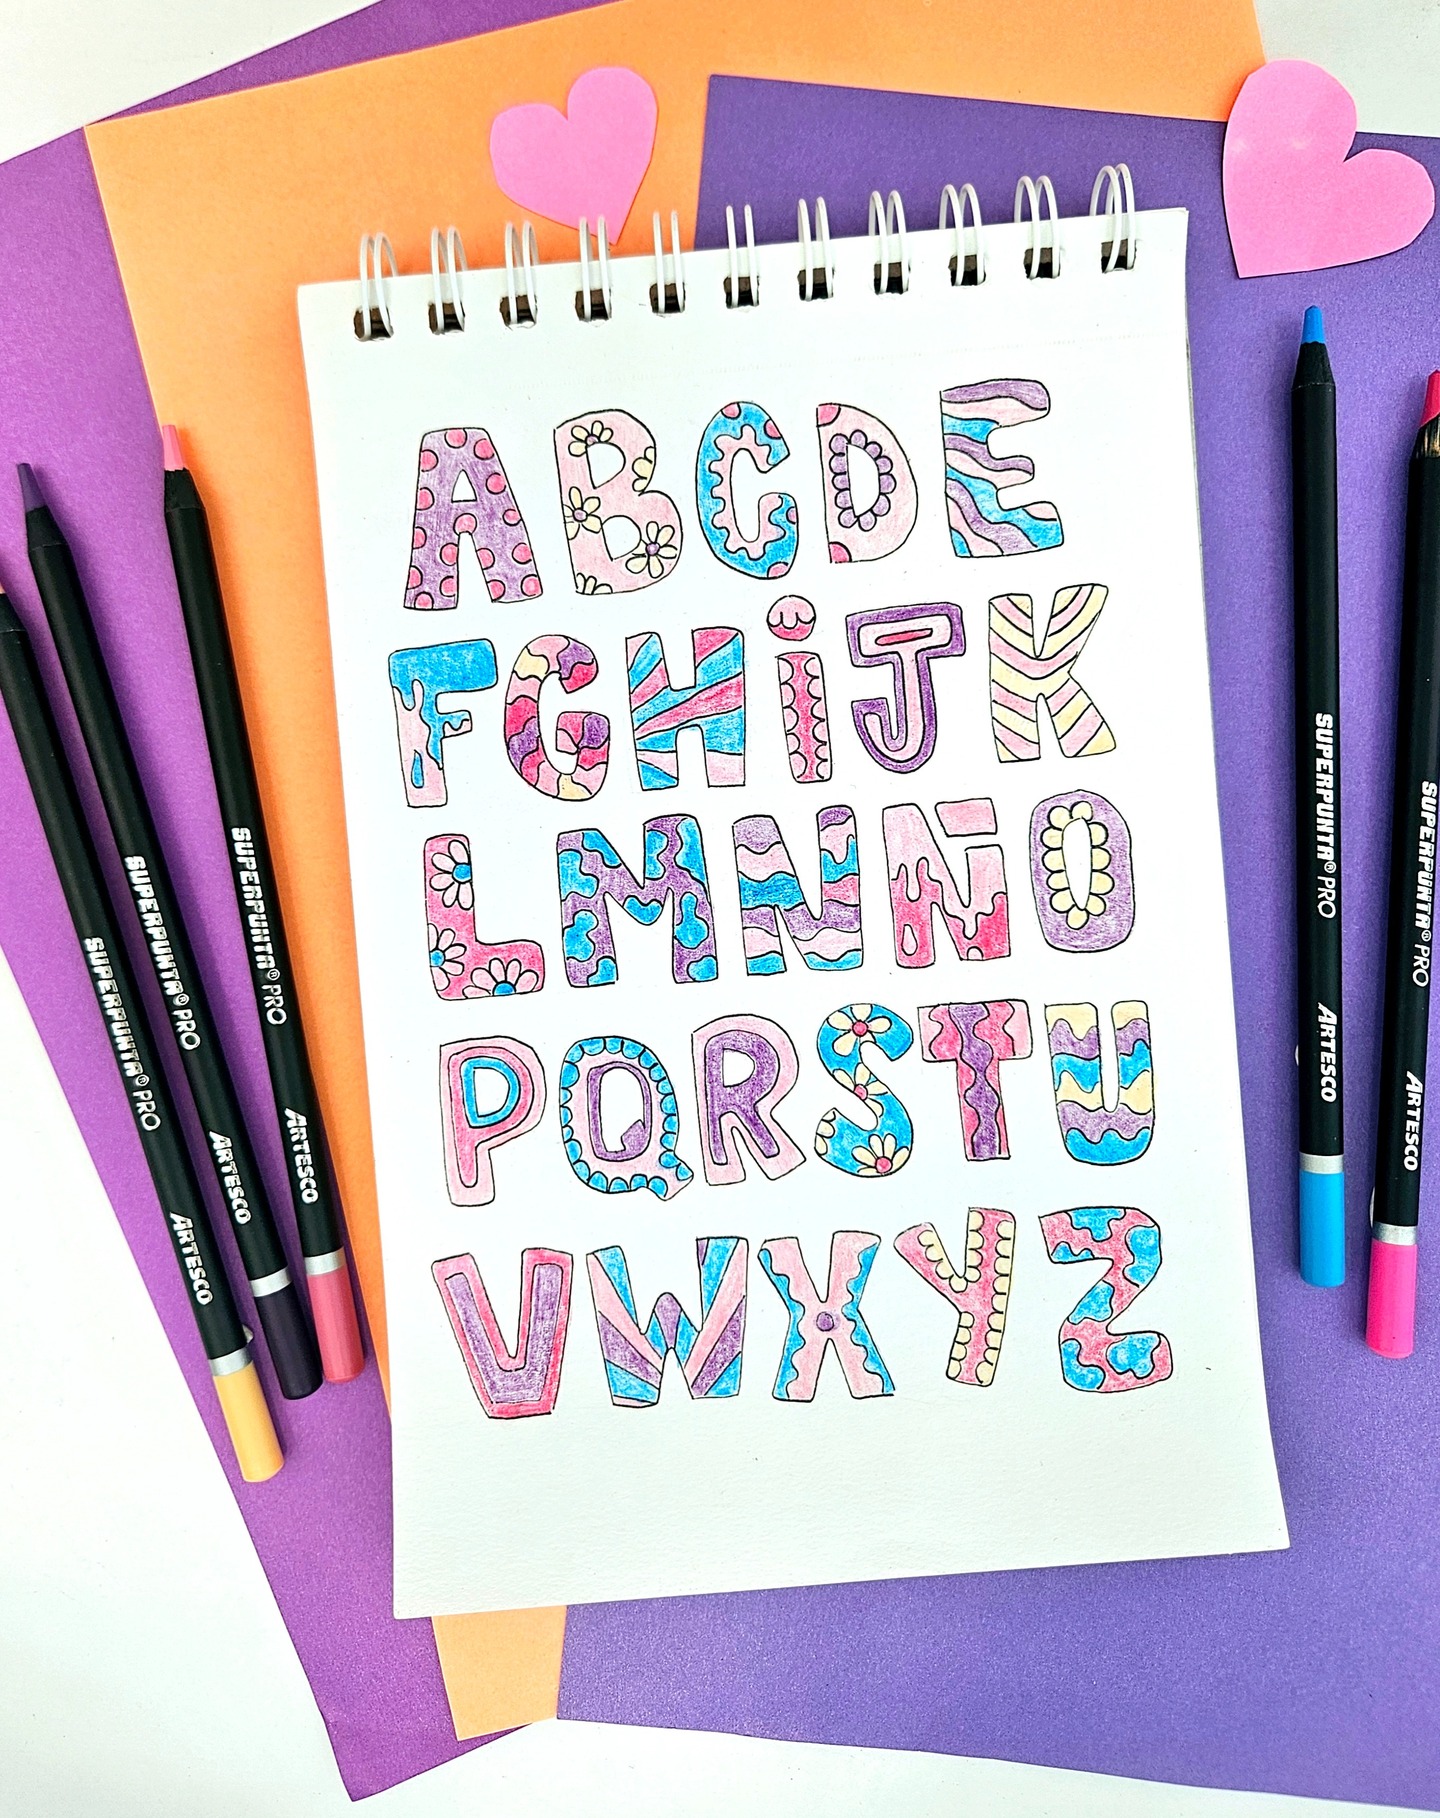 ABCDE
FGHiJK
LMNÑO
PQRSTU
VWXYZ
SUPERPUNTA® PRO ARTESCO
SUPERPUNTA® PRO ARTESCO
SUPERPUNTA® PRO ARTESCO
SUPERPUNTA® PRO ARTESCO
SUPERPUNTA® PRO ARTESCO